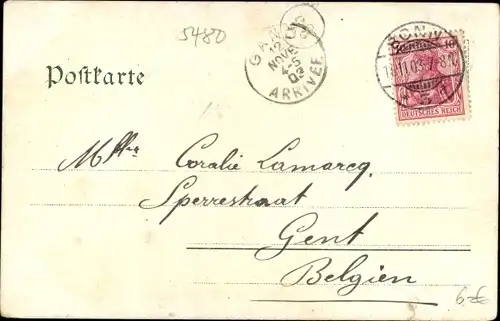 5480
Postkarte
GAND
12
NOVE
4-5
03
ARRIVÉE
BONN
11.03.7-8
10
DEUTSCHES REICH
Mlle Coralie Lamarcq.
Sperrestraat
Gent
Belgien
6.-€